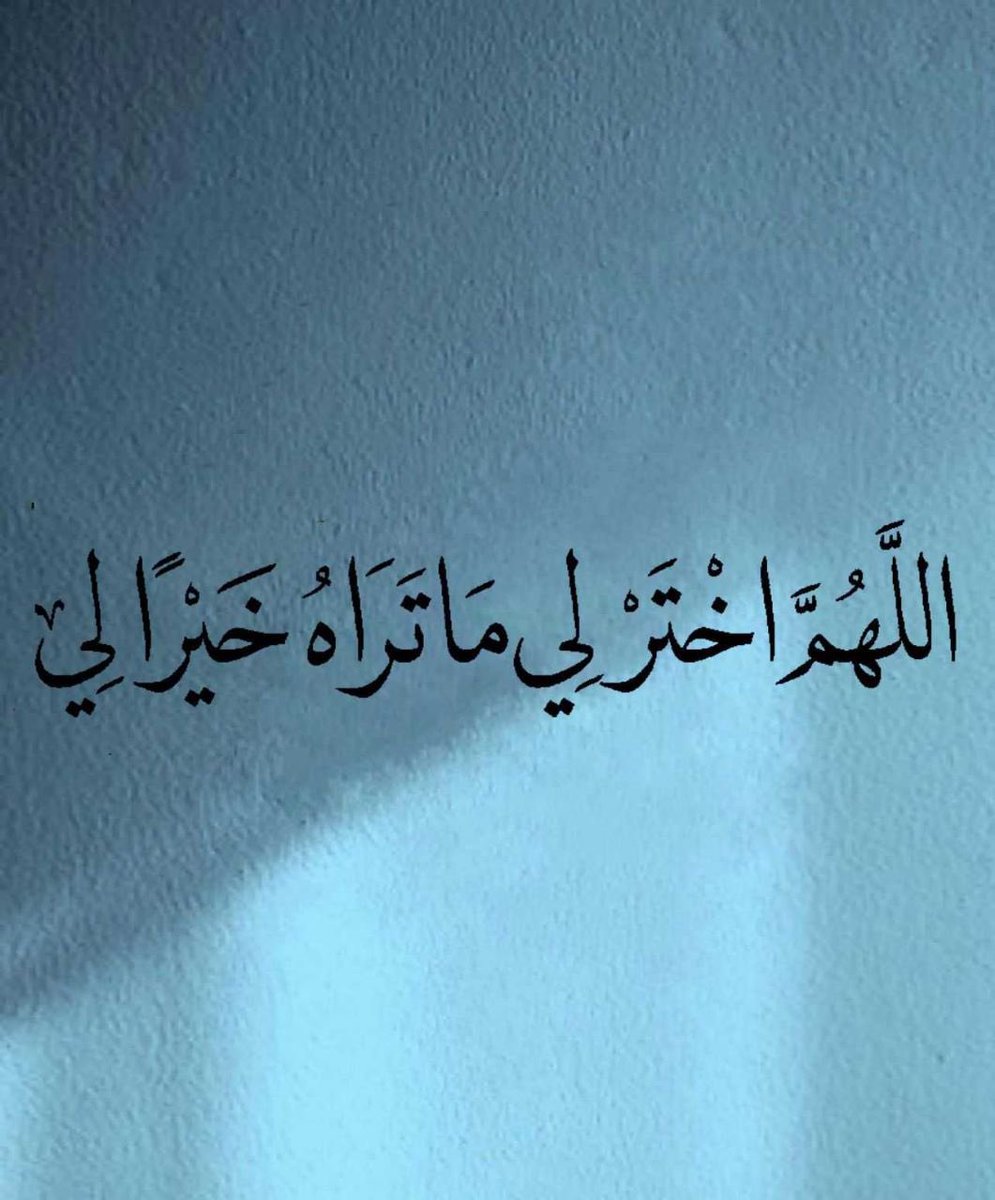 اللَّهُمَّ اخْتَرْ لِي مَا تَرَاهُ خَيْرًا لِي